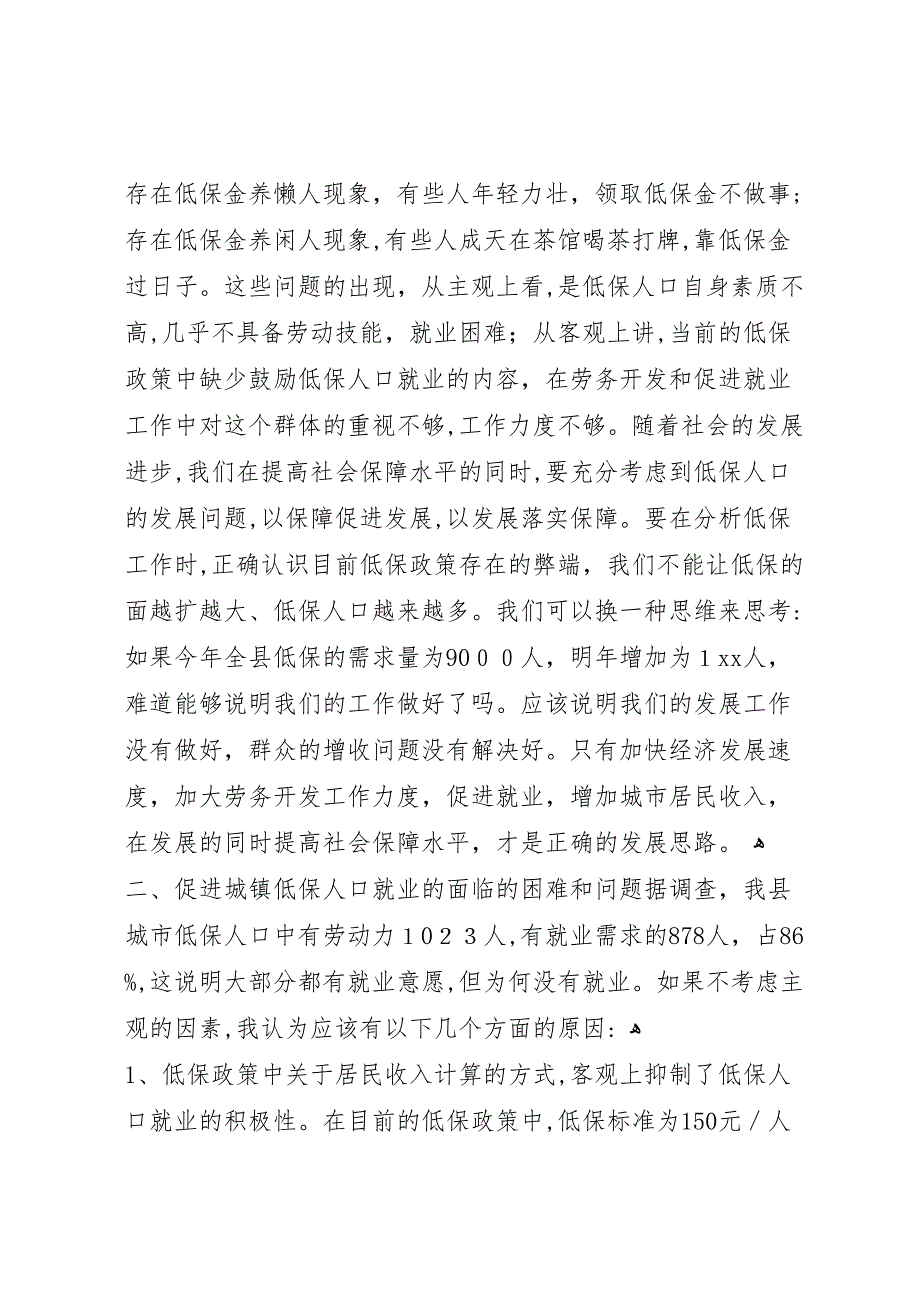 存在低保金养懒人现象，有些人年轻力壮，领取低保金不做事;
存在低保金养闲人现象,有些人成天在茶馆喝茶打牌,靠低保金
过日子。这些问题的出现，从主观上看,是低保人口自身素质不
高,几乎不具备劳动技能，就业困难；从客观上讲,当前的低保
政策中缺少鼓励低保人口就业的内容，在劳务开发和促进就业
工作中对这个群体的重视不够,工作力度不够。随着社会的发展
进步,我们在提高社会保障水平的同时,要充分考虑到低保人口
的发展问题,以保障促进发展,以发展落实保障。要在分析低保
工作时,正确认识目前低保政策存在的弊端，我们不能让低保的
面越扩越大、低保人口越来越多。我们可以换一种思维来思考:
如果今年全县低保的需求量为9０００人，明年增加为１xx人，
难道能够说明我们的工作做好了吗。应该说明我们的发展工作
没有做好，群众的增收问题没有解决好。只有加快经济发展速
度，加大劳务开发工作力度，促进就业，增加城市居民收入，
在发展的同时提高社会保障水平，才是正确的发展思路。 ﻫ
二、促进城镇低保人口就业的面临的困难和问题据调查，我县
城市低保人口中有劳动力１0２３人,有就业需求的878人，占86
%,这说明大部分都有就业意愿,但为何没有就业。如果不考虑主
观的因素,我认为应该有以下几个方面的原因: ﻫ
1、低保政策中关于居民收入计算的方式,客观上抑制了低保人
口就业的积极性。在目前的低保政策中,低保标准为150元／人